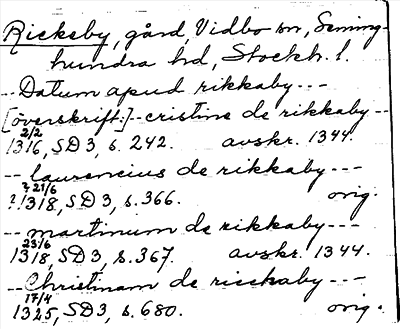 Ricksby, gård, Vidbo sn, Seming-
hundra hd, Stockh. l.
-- Datum apud rikkaby ---
[överskrift:] -- cristine de rikkaby --
2/2
1316, SD 3, s. 242. avskr. 1344.
-- laurencius de rikkaby ---
? 21/6
?1318, SD 3, s. 366. orig.
-- martinum de rikkaby ---
23/6
1318, SD 3, s. 367. avskr. 1344.
-- Christinam de rickaby --
17/4
1325, SD 3, s. 680. orig.